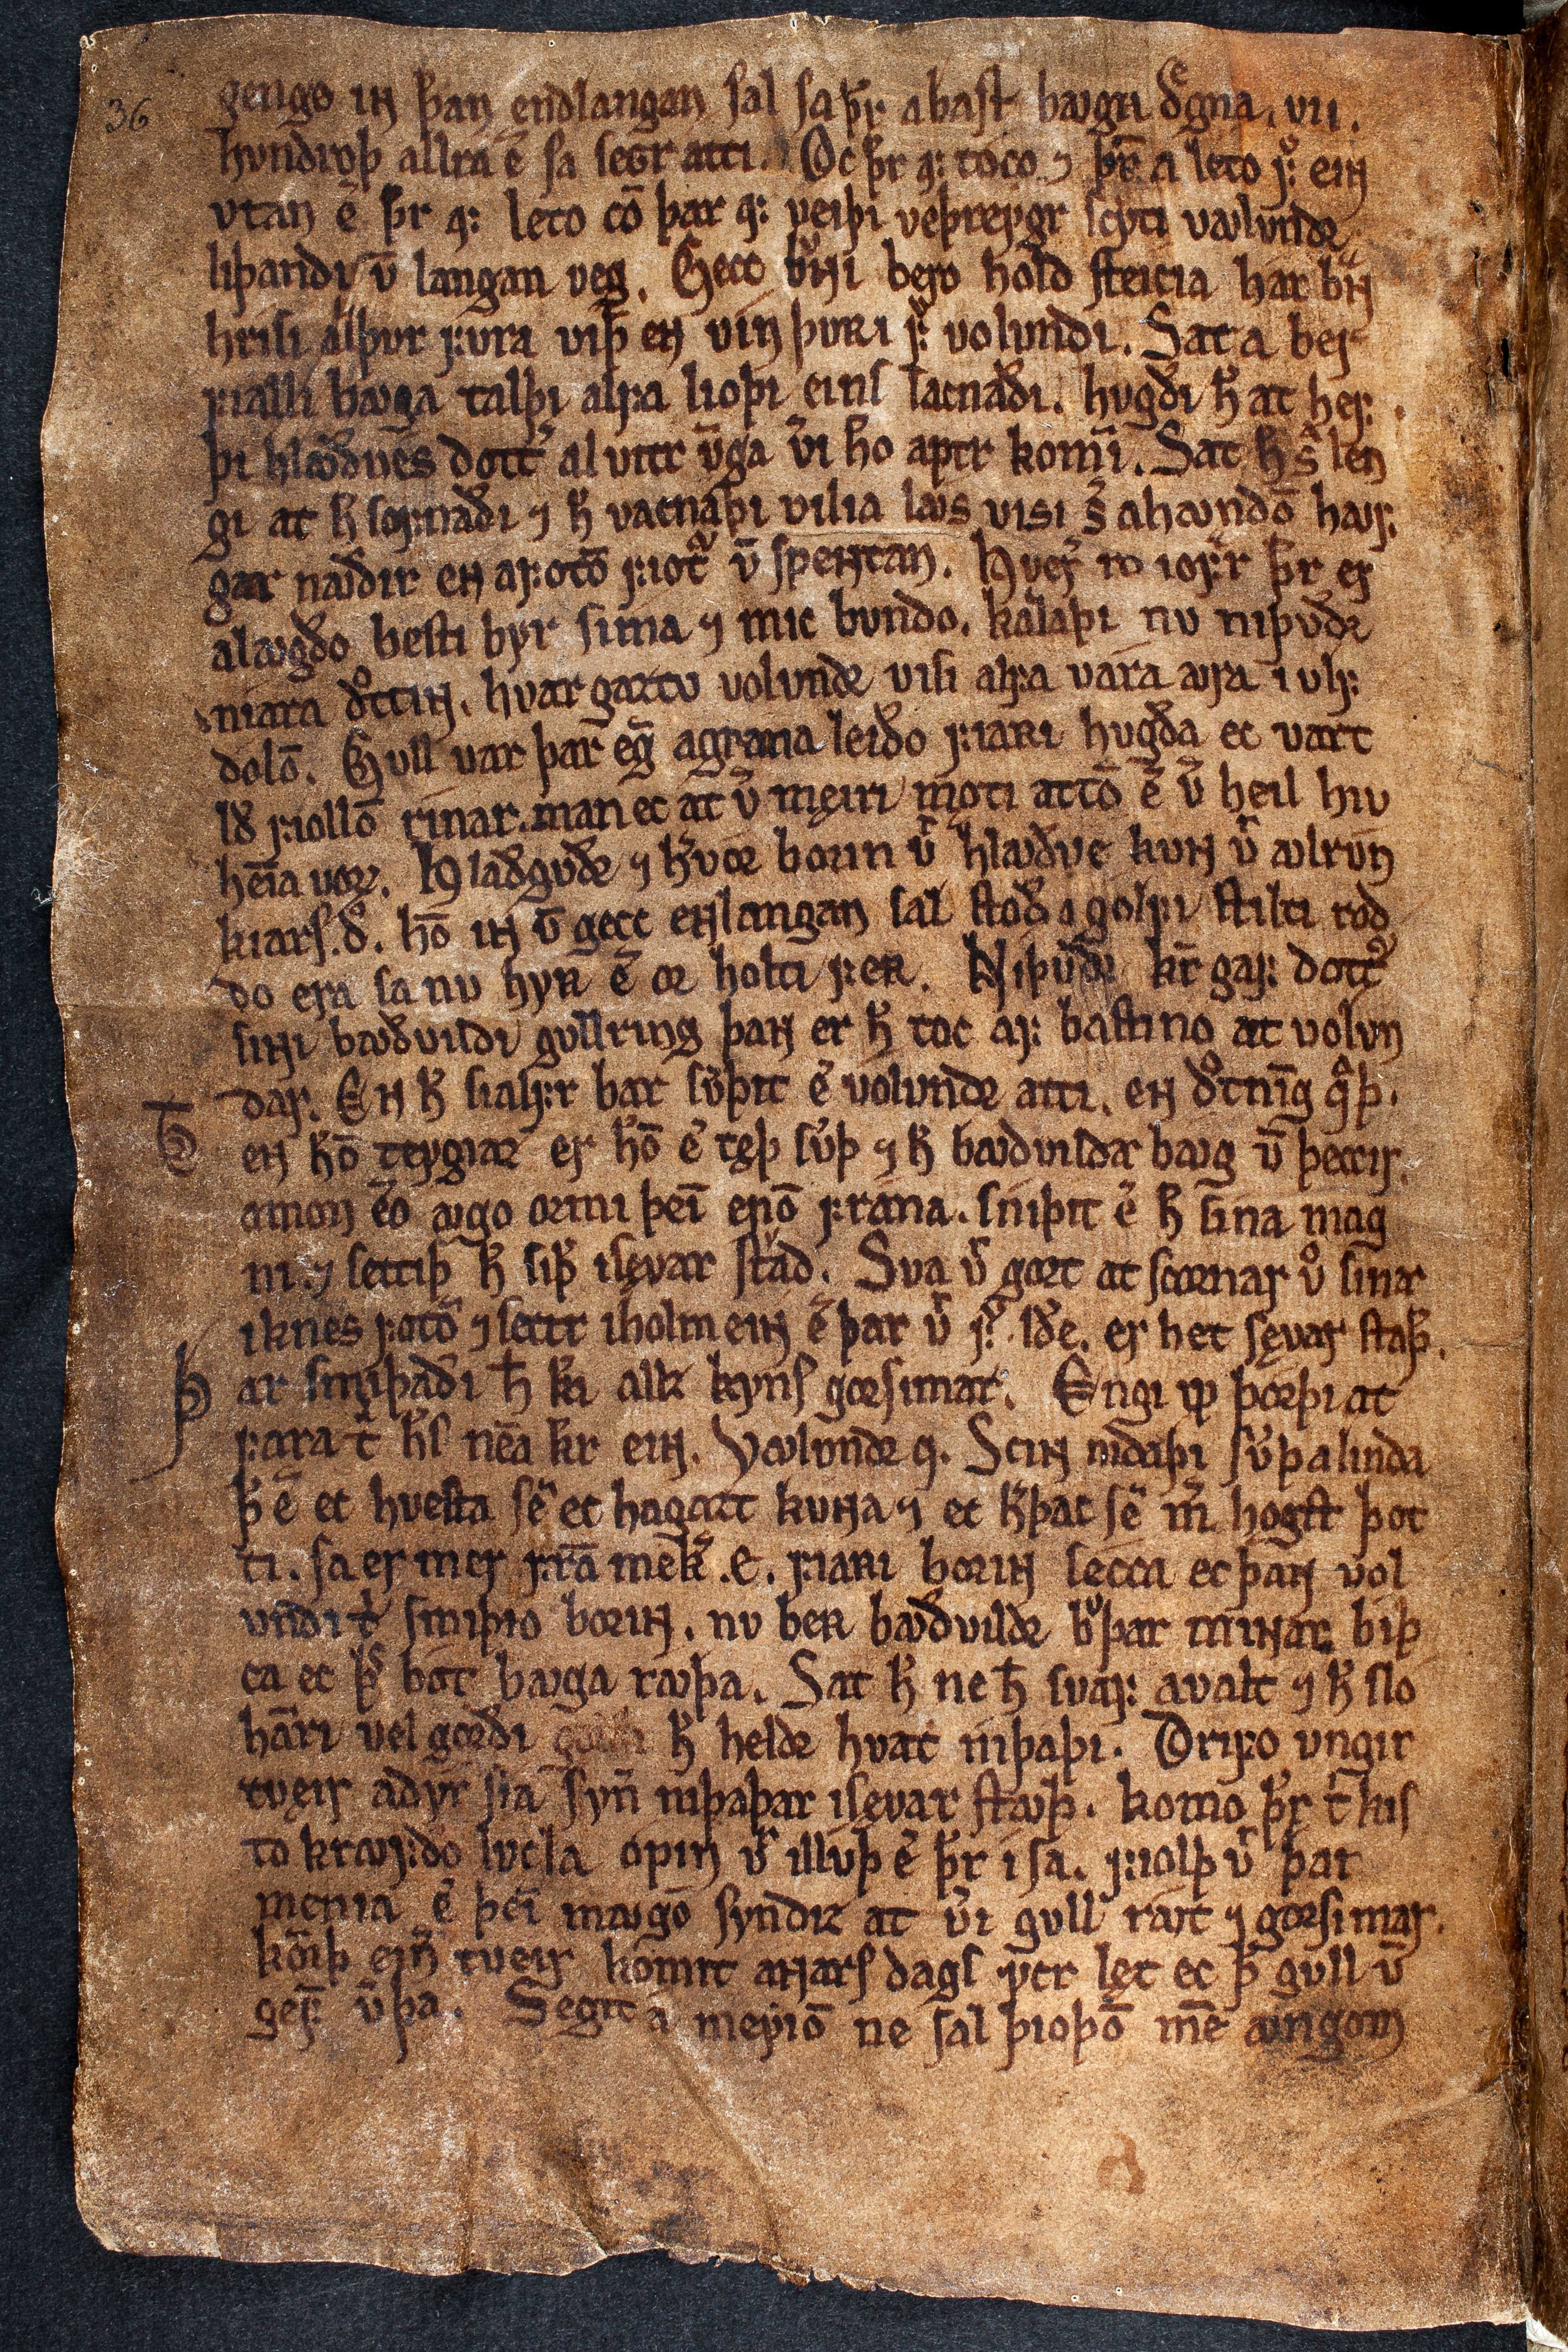 36
gengo iɴ þaɴ endlangan sal sa þr̄ a bast bꜹga dͤgna. vii.
hvndrvþ allra ē sa seGr atti. Oc þr̄ aꝼ toco ⁊ þr̄ a leto ꝼͦ eiɴ
vtan ē þr̄ aꝼ leto cō þar aꝼ veiþi veþreygr scyti vꜹlundꝛ
liþandi v̄ langan veg. Gecc bͮɴi bero hold steicia hár bͮɴ
hrísi allþur fura viþ eɴ vin þuʀi fͥ volundi. Sat a ber
fialli bꜹga talþi alfa lioþi eins sacnaði. hugði h̄ at hef
þi hlꜹðves dottͥ alvitr v̄ga v̄i hō aptr komī. Sat h̄ sͣ len
gi at h̄ sofnaði ⁊ h̄ vacnaþi vilia lꜹs vissi sͤ a hꜹndō hꜹf
gar nꜹðir en a fotō fiotͬ v̄ spentan. Hverͥ ro iofrar þr̄ er
a lꜹgðo besti byr sima ⁊ mic bundo. kallaþi nv niþvðꝛ
niara dͦttiɴ. hvar gaztv volundꝛ visi alfa vára ꜹra i vlf
dolō. Gull var þar eḡ a grana leiðo fiaʀi hugða ec vart
ld̄ fiollō rinar. man ec at v̄ męiri męti áttō ē v̄ heil hiv
hēia vorꝫ. Hlaðgvðꝛ ⁊ h̄vor borin vͬ hlꜹðve kuɴ vͬ ꜹlrun
kiars .d̄. hō iɴ v̄ gecc eɴlangan sal stoð a golfi stilti rǫd
do era sa nv hyʀ ē oꝛ holti feʀ. Niþuðꝛ kr̄ gaf dottͦ
siɴi bꜹðvildi gullring þaɴ er h̄ toc af bastino at volun
dar. Eɴ h̄ sialfr bar sv̄þit ē volundꝛ atti. en dͦtnīg qͣþ.
T
eɴ hō teygiaz er hō ē tęþ sv̄þ ⁊ h̄ bꜹdvildar bꜹg v̄ þeccir.
amon ēo ꜹgo ormi þeī enō frána. sniþit ē h̄ sina mag
ni. ⁊ settiþ h̄ siþ i sęvar stad. Sva vͬ gort at scornar vͦ sinar
i knes fotō ⁊ settr i holm eiɴ ē þar vͬ fͥ ld̄e. er het sęvar staþ.
þ
ar smiþaði h̄ kͥ allꝫ kyns gorsimar. Engi m̄ þorþi at
fara t̄ h̄s nēa kr̄ eiɴ. Vꜹlundꝛ q. Sciɴ nidaþi sv̄þ a linda
þ̄ ē ec hvesta sē ec hagazt kuɴa ⁊ ec h̄þac sē m̄ hogst þot
ti. sa er mer frā męk̄ .e. fiaʀi boriɴ secca ec þaɴ vol
undi t̄ smiþio boriɴ. nv beʀ bꜹðvildꝛ bͮþar miɴar biþ
ca ec þͤs bot bꜹga rꜹþa. Sat h̄ ne h̄ svaf ávalt ⁊ h̄ slo
hāri vel gorði h̄ heldꝛ hvat niþaþi. Drifo ungir
tveir a dyr siá syn̄ niþaþar i sęvar stꜹþ. komo þr̄ t̄ kis
to krꜹfdo lucla opin vͬ illuþ ē þr̄ i sá. fiolþ vͬ þar
menia ē þeī mꜹgō syndiz at v̄i gull rꜹt ⁊ gorsimar.
kōiþ ein̄ tveir komit aɴars dags ycr lęt ec þ̄ gull v̄
gef v̄þa. Segit a meyiō ne sal þioþō mē ꜹngom